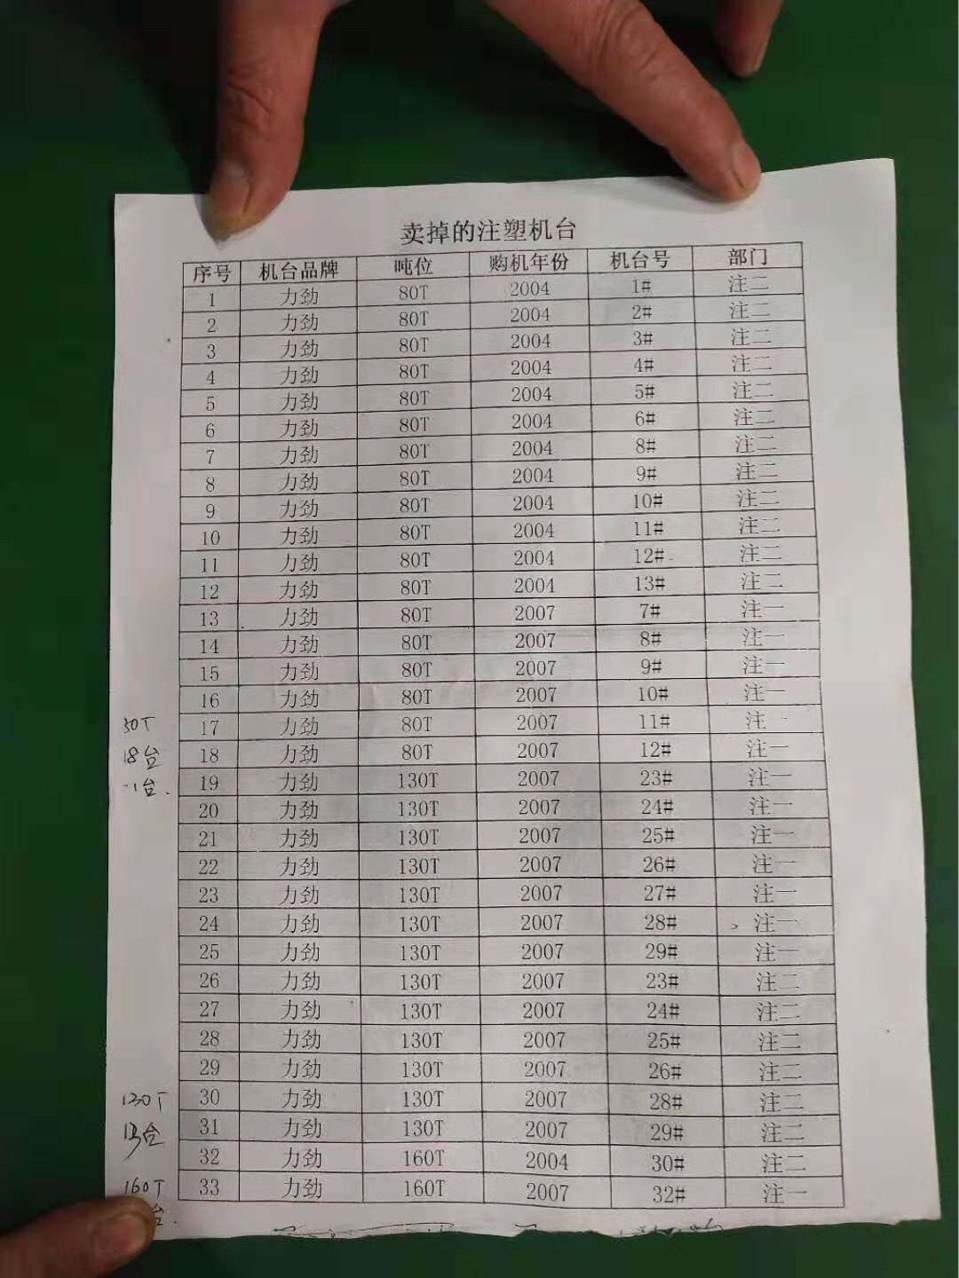 卖掉的注塑机台
序号 机台品牌 吨位 购机年份 机台号 部门
1 力劲 80T 2004 1# 注二
2 力劲 80T 2004 2# 注二
3 力劲 80T 2004 3# 注二
4 力劲 80T 2004 4# 注二
5 力劲 80T 2004 5# 注二
6 力劲 80T 2004 6# 注二
7 力劲 80T 2004 8# 注二
8 力劲 80T 2004 9# 注二
9 力劲 80T 2004 10# 注二
10 力劲 80T 2004 11# 注二
11 力劲 80T 2004 12# 注二
12 力劲 80T 2004 13# 注二
13 力劲 80T 2007 7# 注一
14 力劲 80T 2007 8# 注一
15 力劲 80T 2007 9# 注一
16 力劲 80T 2007 10# 注一
17 力劲 80T 2007 11# 注一
18 力劲 80T 2007 12# 注一
18台
19 力劲 130T 2007 23# 注一
20 力劲 130T 2007 24# 注一
21 力劲 130T 2007 25# 注一
22 力劲 130T 2007 26# 注一
23 力劲 130T 2007 27# 注一
24 力劲 130T 2007 28# 注一
25 力劲 130T 2007 29# 注一
26 力劲 130T 2007 23# 注二
27 力劲 130T 2007 24# 注二
28 力劲 130T 2007 25# 注二
29 力劲 130T 2007 26# 注二
30 力劲 130T 2007 28# 注二
130T
31 力劲 130T 2007 29# 注二
13台
32 力劲 160T 2004 30# 注二
33 力劲 160T 2007 32# 注一
160T
台